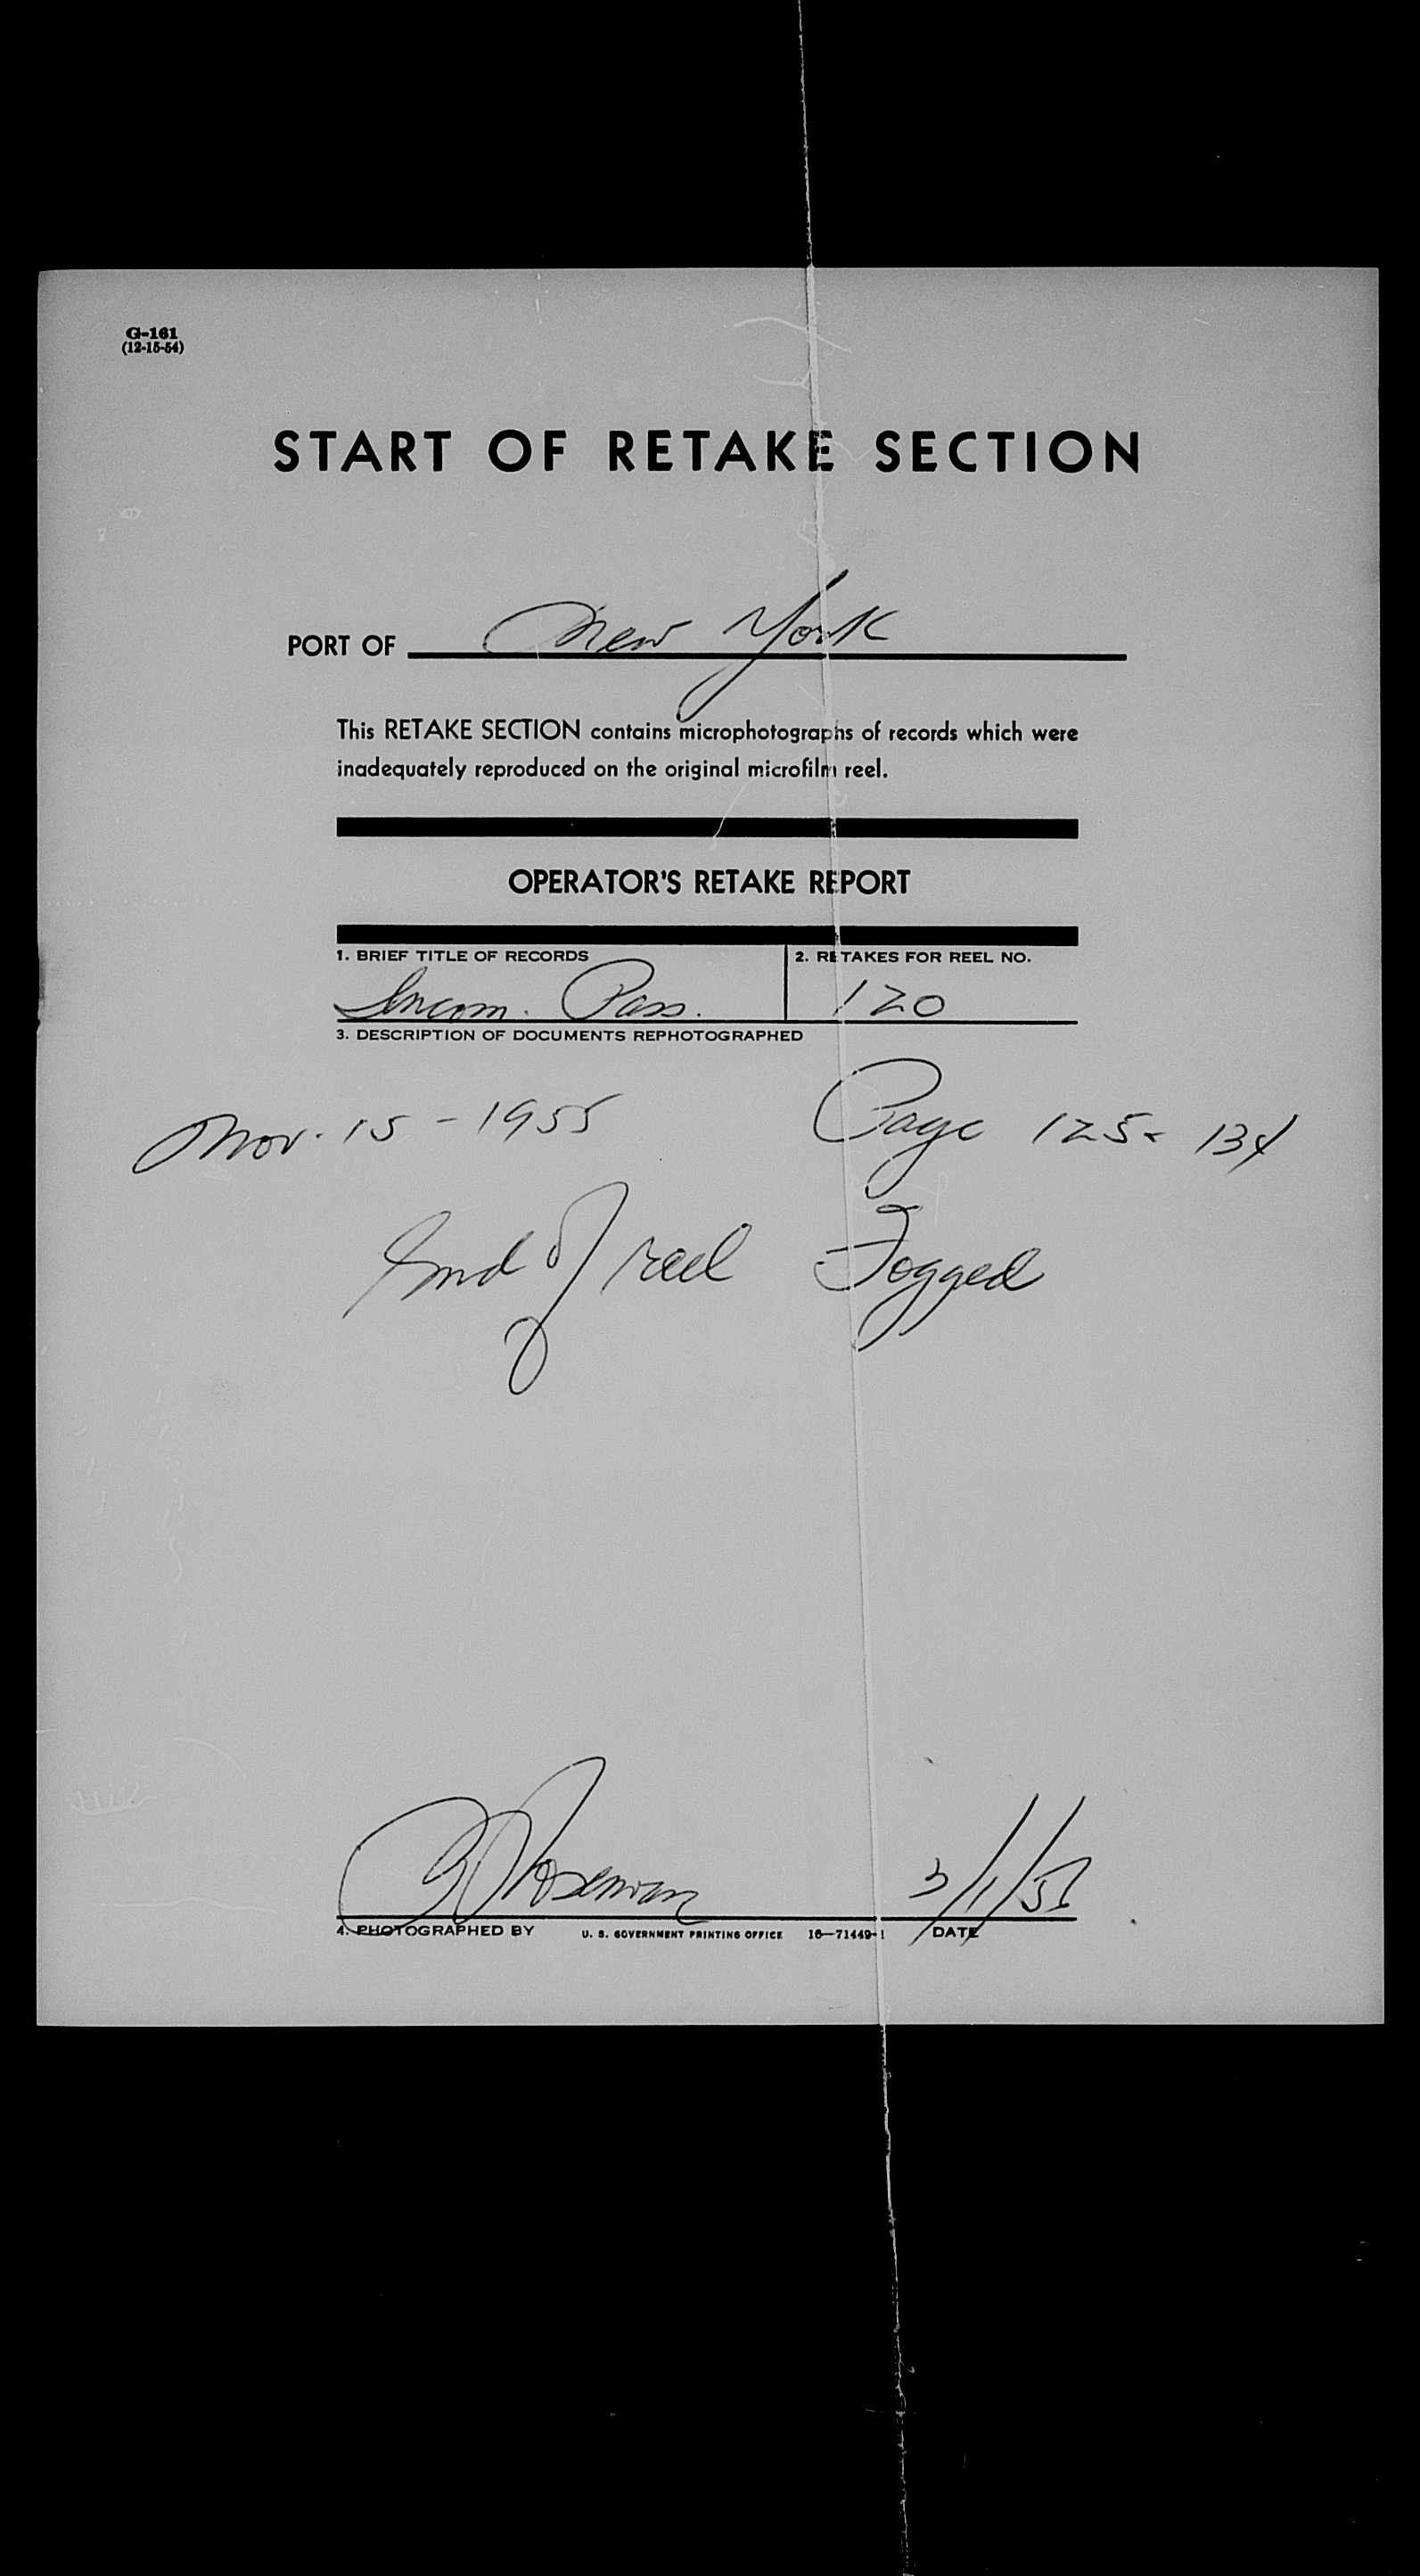 G-161
(12-15-54)
START OF RETAKE SECTION
PORT OF New York
This RETAKE SECTION contains microphotographs of records which were
inadequately reproduced on the original microfilm reel.
OPERATOR'S RETAKE REPORT
1. BRIEF TITLE OF RECORDS 2. RETAKES FOR REEL NO.
Incom. Pass. 120
3. DESCRIPTION OF DOCUMENTS REPHOTOGRAPHED
Nov. 15 - 1955 Page 125- 134
End of reel Fogged
Roseman 3/1/
4. PHOTOGRAPHED BY U. S. GOVERNMENT PRINTING OFFICE 16—71449-1 DATE